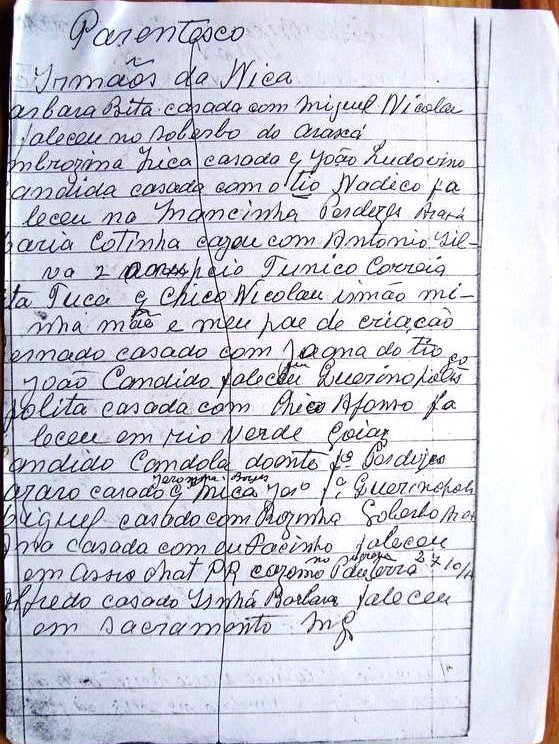 Parentesco
Irmãos da Nica
arbara Bita casada com Miguel Nicolau
faleceu no soberbo do araxá
mbrozina Zica casada c João Ludovino
andida casada com o tio Nadico fa
leceu na Mancinha Perdizes Araxá
aria Cotinha cazou com Antonio Sil-
va 2 Tunico Correia
ta Tuca c Chico Nicolau irmão mi-
nha mãe e meu pae de criação
ernado casado com Joana do tio
João Candido faleceu Querinopolis
polita casada com Chico Afonso fa
leceu em rio verde Goiaz
andido Candola doente fº Perdizes
azaro casado c Mica fº Querinopoli
Jeronima Borges
iguel casado com Rozinha Soberbo Ara
na casada com eu Pacinho faleceu
em Assis chat PR cazemo
no
27/10/
lfredo casado Sinhá Barbara faleceu
em Sacramento MG